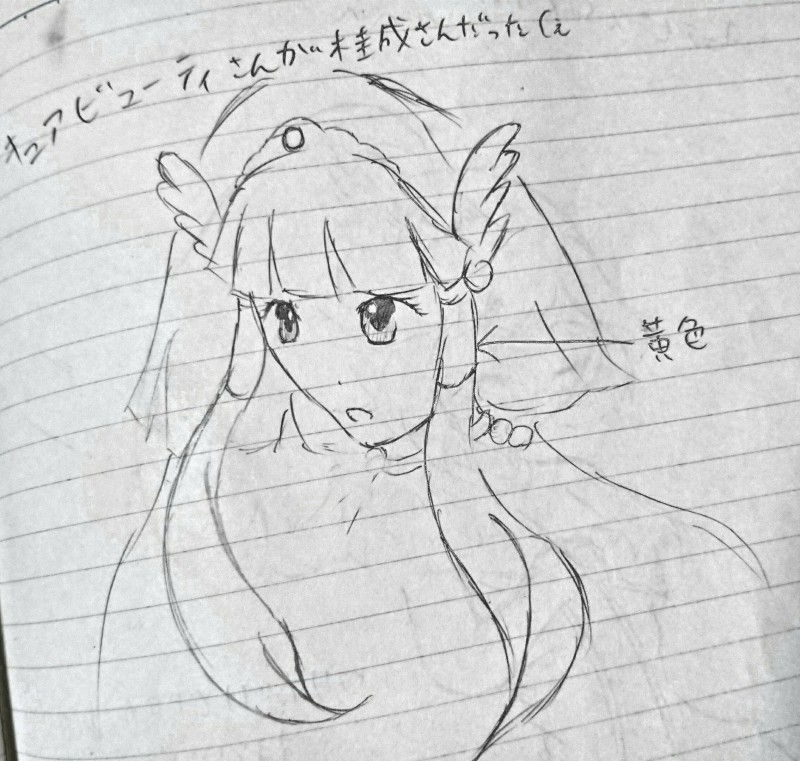 キュアビューティさんが桂成さんだった(ぇ
黄色